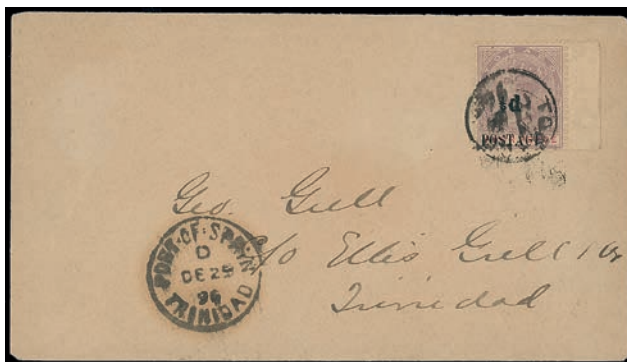 ½d
POSTAGE
TO
Geo. Grell
c/o Ellis Grell & Co
Trinidad
PORT-OF-SPAIN
D
DE 29
96
TRINIDAD